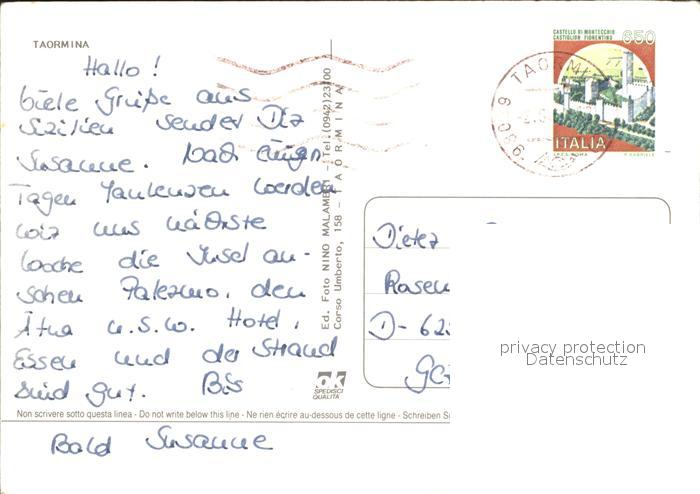 TAORMINA
Hallo!
Viele Grüße aus
Sizilien sendet Dir
Susanne. Nach einigen
Tagen faulenzen werden
wir uns nächste
Woche die Insel an-
sehen Palermo, den
Ätna u.s.w. Hotel,
Essen und der Strand
sind gut. Bis
Bald Susanne
Ed. Foto NINO MALAMBRI - Tel. (0942) 23700
Corso Umberto, 158 - TAORMINA
ok
SPEDISCI
QUALITÀ
Non scrivere sotto questa linea - Do not write below this line - Ne rien écrire au-dessous de cette ligne - Schreiben
CASTELLO DI MONTECCHIO
CASTIGLION FIORENTINO
650
ITALIA
TAORMI
Dieter
Rosen
D-62
privacy protection
Datenschutz